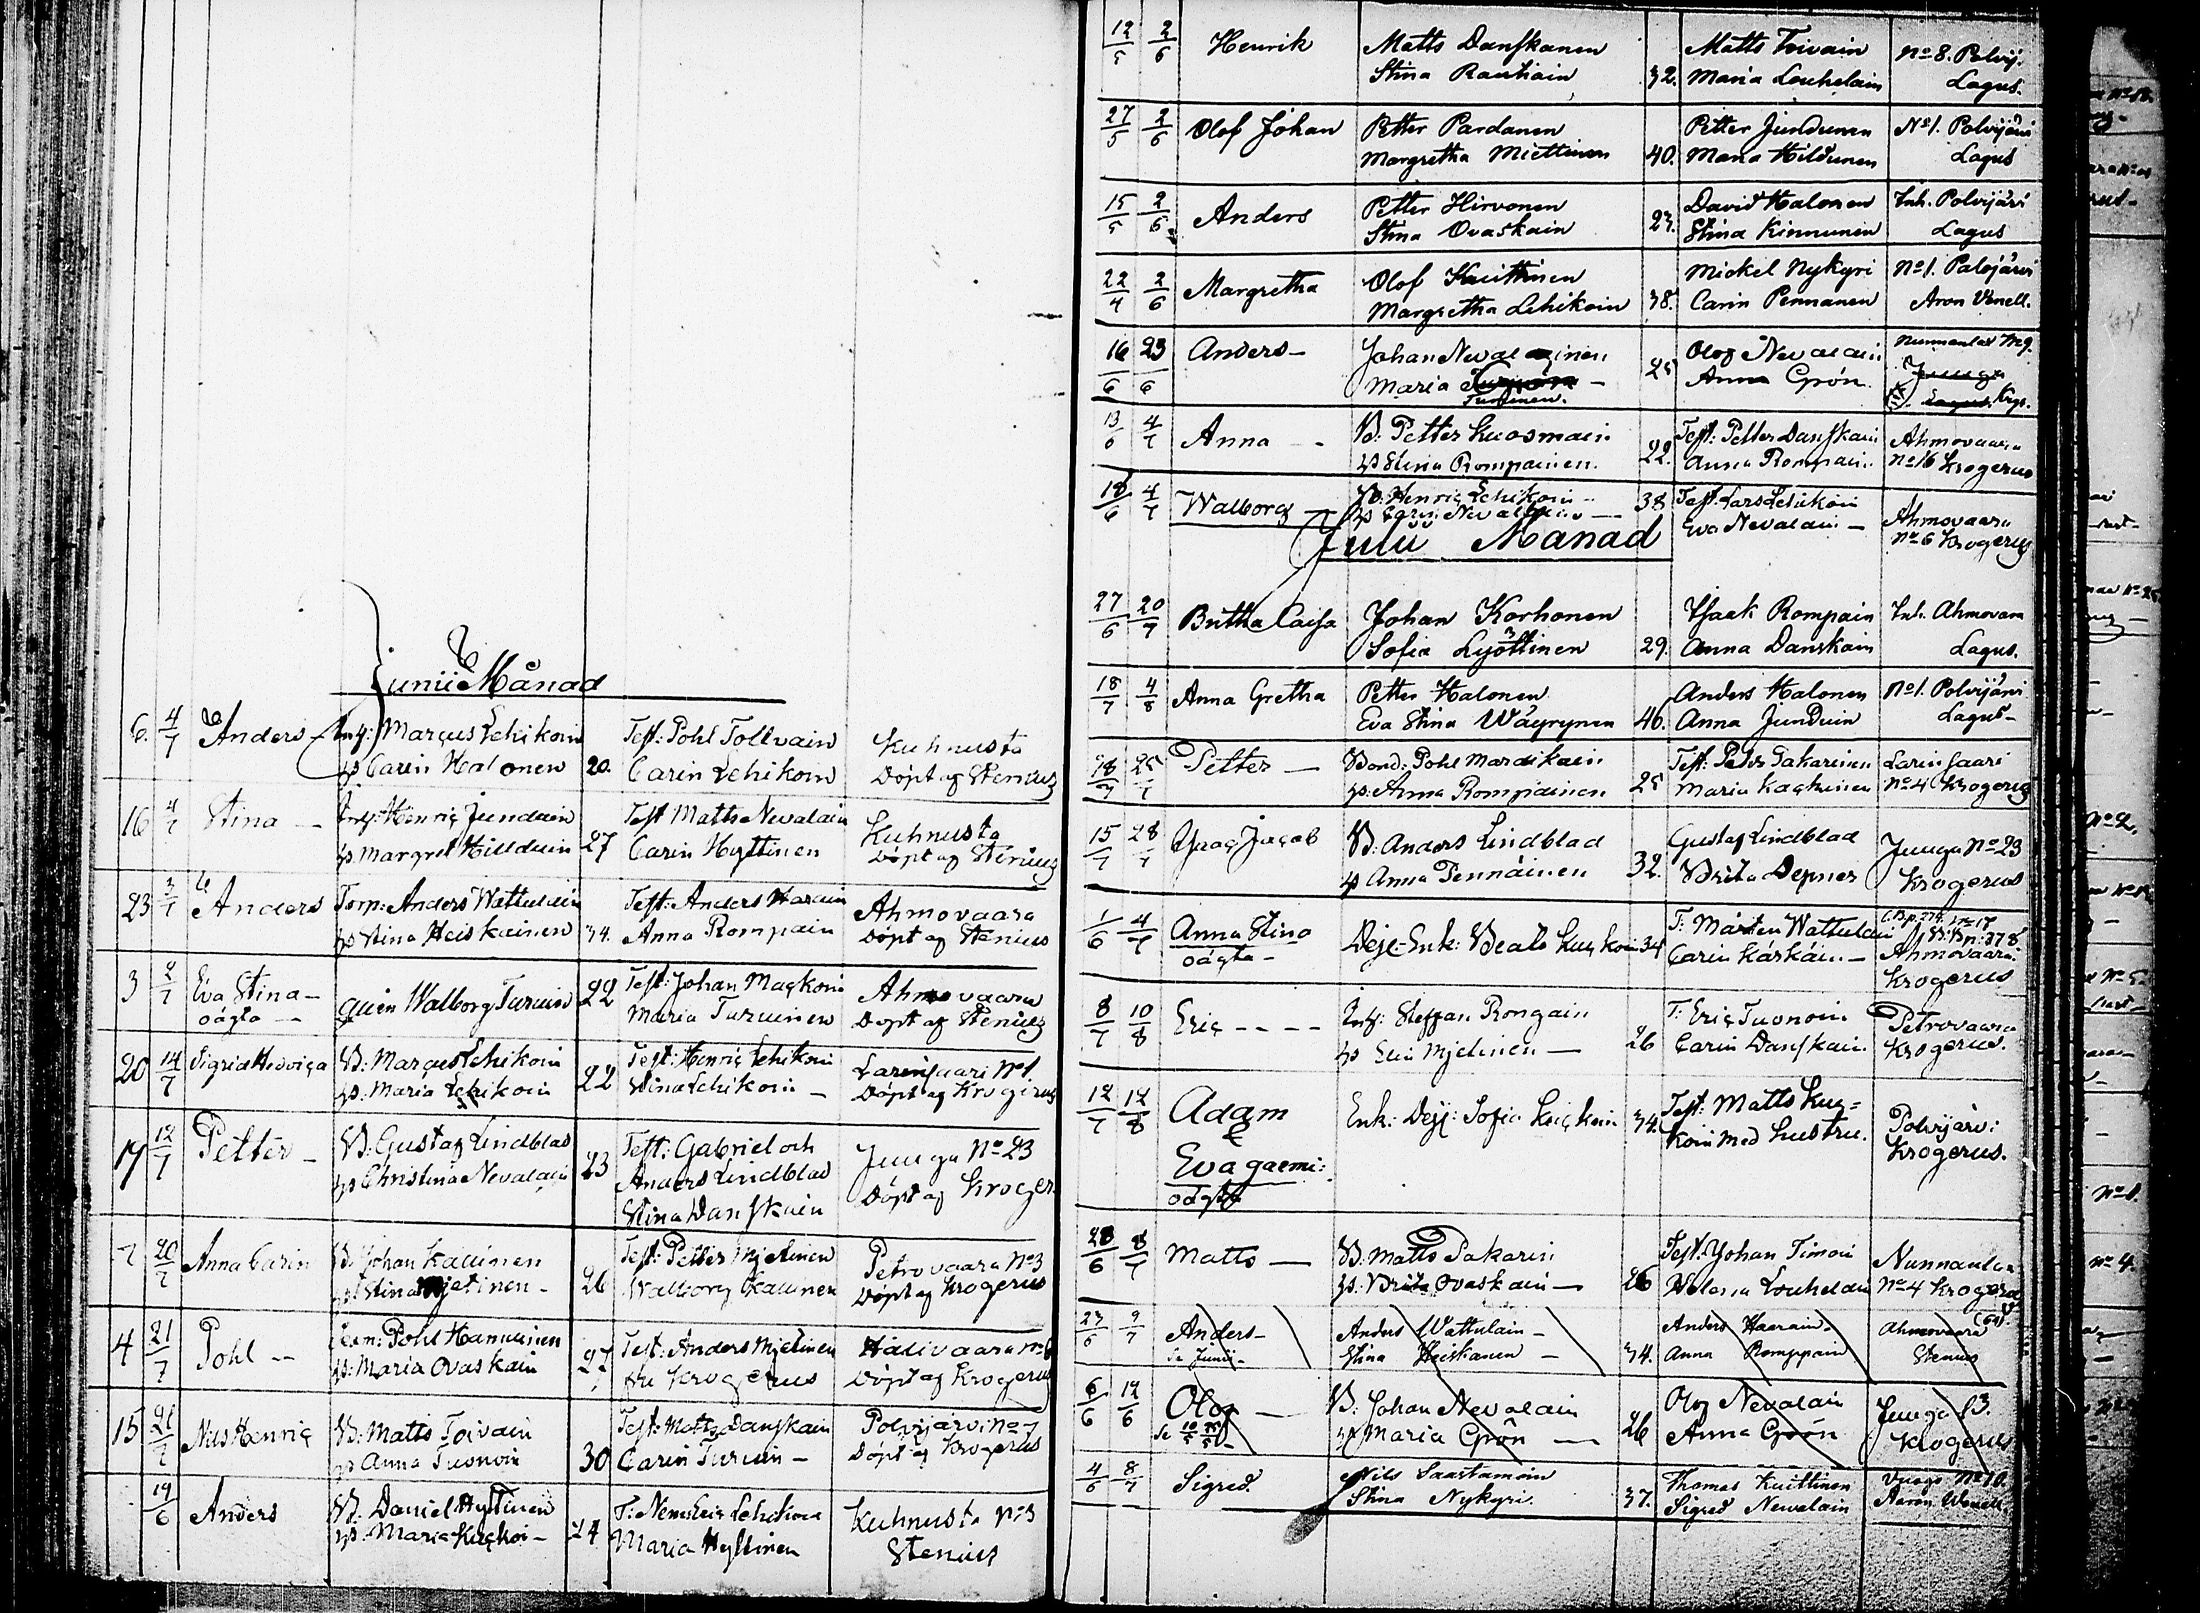 Junii Månad
6. 4/7 Anders Inh: Marcus Lehikoin Test: Pohl Tolvain Kuhnusta
hs Carin Halonen 20. Carin Lehikoin Döpt af Stenius
16 4/7 Stina — Inh: Henric Junduin Test Matts Nevalain Kuhnusta
hs Margret Hilduin 27 Carin Hyttinen Döpt af Stenius
23 3/7 Anders Torp: Anders Wattulain Test: Anders Harain Ahmovaara
hs Stina Heiskainen 34. Anna Rompain Döpt af Stenius
3 2/7 Eva Stina — Test: Johan Mackoin Ahmovaara
oägta — Walborg Turuin 22 Maria Turuinen Döpt af Stenius
20 14/7 Sigrid Hedviga B: Marcus Lehikoin Test: Henric Lehikoin Larinsaari No 1.
hs: Maria Lehikoin 22 Stina Lehikoin — Döpt af Krogerus
17 12/7 Petter — B: Gustaf Lindblad Test: Gabriel och Juuga No 23
hs Christina Nevalain 23 Anders Lindblad Döpt af Kroger
Stina Danskain
7 20/7 Anna Carin B: Johan Kauinen Test: Petter Mjetinen Petrovaara No 3
hs Stina Mjetinen — 26 Walborg Kauinen Döpt af Krogerus
4 21/7 Pohl -- Pohl Hannuinen Test: Anders Mjetinen Halivaara No 6
hs: Maria Ovaskain 27 fru Krogerus Döpt af Krogerus
15 21/7 Nils Henric B: Matts Toivain Test: Matts Danskain Polvijärvi No 7
hs Anna Tuonoin 30 Carin Turuin — Döpt af Krogerus
19/6 Anders B: Daniel Hyttinen T: Lehikoin Kuhnusta No 3
hs. Maria Kackoi — 24 Maria Hyttinen Stenius
12/5 2/6 Henrik Matts Danskanen Matts Toivain No 8. Polvij.
Stina Rautiain 32. Maria Louhelain Lagus.
27/5 2/6 Olof Johan Petter Pardanen Petter Jundunen No 1. Polvijärvi
Margretha Miettinen 40. Maria Hildunen Lagus
15/5 2/6 Anders Petter Hirvonen David Halonen Inh. Polvijärvi
Stina Ovaskain 23. Stina Kinnunen Lagus
22/4 2/6 Margretha Olof Kuittinen Mickel Nykyri No 1. Palojärvi
Margretha Lehikoin 38. Carin Pennanen Aron Wenell.
16/6 23/6 Anders — Johan Nevalainen Olof Nevalain Nunnanlax
Maria — 25 Anna Grön. Juuga
Turuinen. Lagus. Krgs.
13/6 4/7 Anna -- B: Petter Kuosmain Test: Petter Danskain Ahmovaara
hs Stina Rompainen. 22. Anna Rompain. No 16 Krogerus
18/6 4/7 Walborg B: Henric Lehikoin — 38 Test: Lars Lehikoin Ahmovaara
hs Carin Nevalain — Eva Nevalain — No 6 Krogerus
Julii Månad
27/6 20/7 Britha Caisa Johan Korhonen Isaak Rompain Inh. Ahmovara
Sofia Lyöttinen 29. Anna Danskain Lagus.
18/7 4/8 Anna Gretha Petter Halonen Anders Halonen No 1. Polvijärvi
Eva Stina Wäyrynen 46. Anna Junduin Lagus —
18/7 25/7 Petter — Bond: Pohl Mardikain Test: Peter Pakarinen Larinsaari
hs. Anna Rompainen 25 Maria Kackuinen No 4 Krogerus
15/7 28/7 Isaac Jacob B: Anders Lindblad Gustaf Lindblad Juuga No 23
hs Anna Pennäinen 32. Brita Depner Krogerus
1/6 4/7 Anna Stina T: Mårten Wattulain
oägta — Deje-Enk: Beata Kuckoin 34 Carin Kärkäin — Ahmovaara
Krogerus
8/7 10/8 Eric ---- Inh: Steffan Rongain T: Eric Tuonoin Petrovaara
hs Elin Mjetinen — 26 Carin Danskain. Krogerus.
12/7 12/8 Adam Enk: Dejj: Sofia Kuckoin 34. Test: Matts Kuc= Polvijärvi
& koin med hustru. Krogerus.
Eva gaemi:
oägta
28/6 8/7 Matts — B: Matts Pakarin Test: Johan Timoin Nunnanlax
hs. Brita Ovaskain — 26 Helena Louhelain No 4 Krogerus
23/6 9/7 Anders — Anders Wattulain — Anders Haarain — Ahmovaara
Se Junii — Stina Heiskanen — 34. Anna Romppain Stenius
6/6 19/6 Olof — B: Johan Nevalain Olof Nevalain Juuga 13.
hs Maria Grön — 26 Anna Grön Krogerus
4/6 8/7 Sigred. Nils Saastamoin Thomas Kuittinen Juuga No 10.
Stina Nykyri. 37. Sigred Nevalain Aaron Wenell